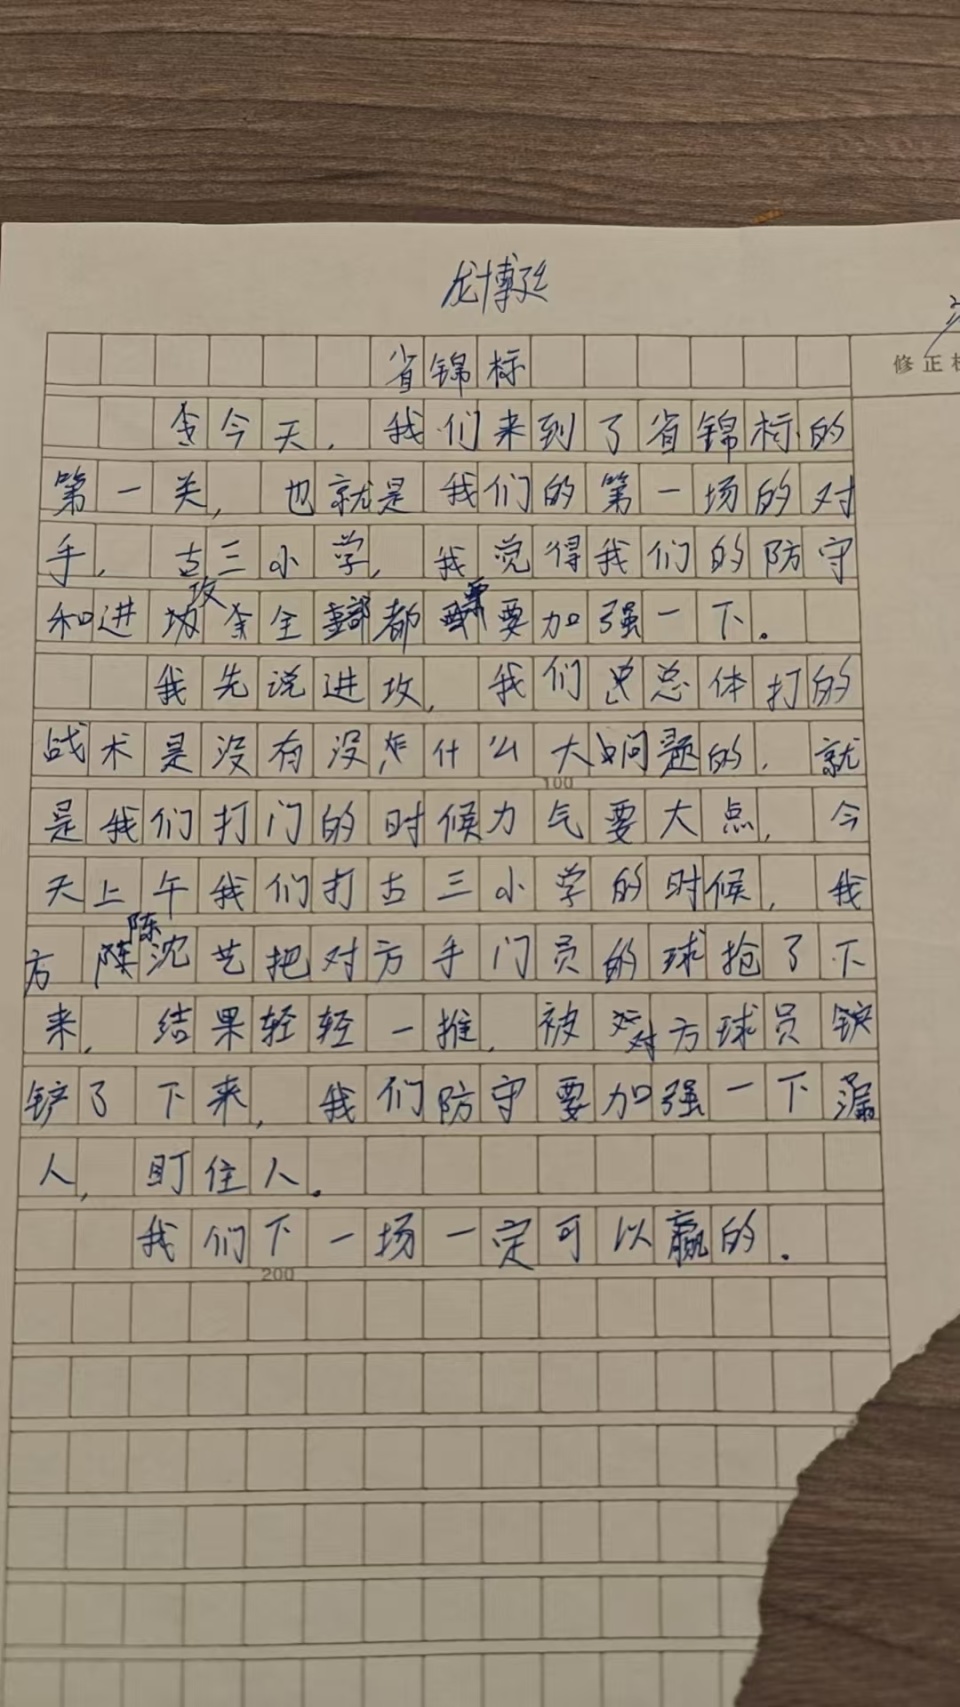 省锦标
修正
今天，我们来到了省锦标的
第一关，也就是我们的第一场的对
手，古三小学，我觉得我们的防守
和进攻全部都需要加强一下。
我先说进攻，我们总体打的
战术是没有没什么大问题的，就
是我们打门的时候力气要大点，今
天上午我们打古三小学的时候，我
方陈沈艺把对方手门员的球抢了下
来，结果轻轻一推，被对方球员铲
铲了下来，我们防守要加强一下漏
人，盯住人。
100
我们下一场一定可以赢的。
200